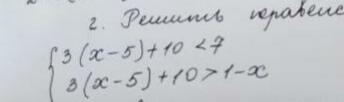 2. Решить неравенс
{3(x-5)+10<7
3(x-5)+10>1-x